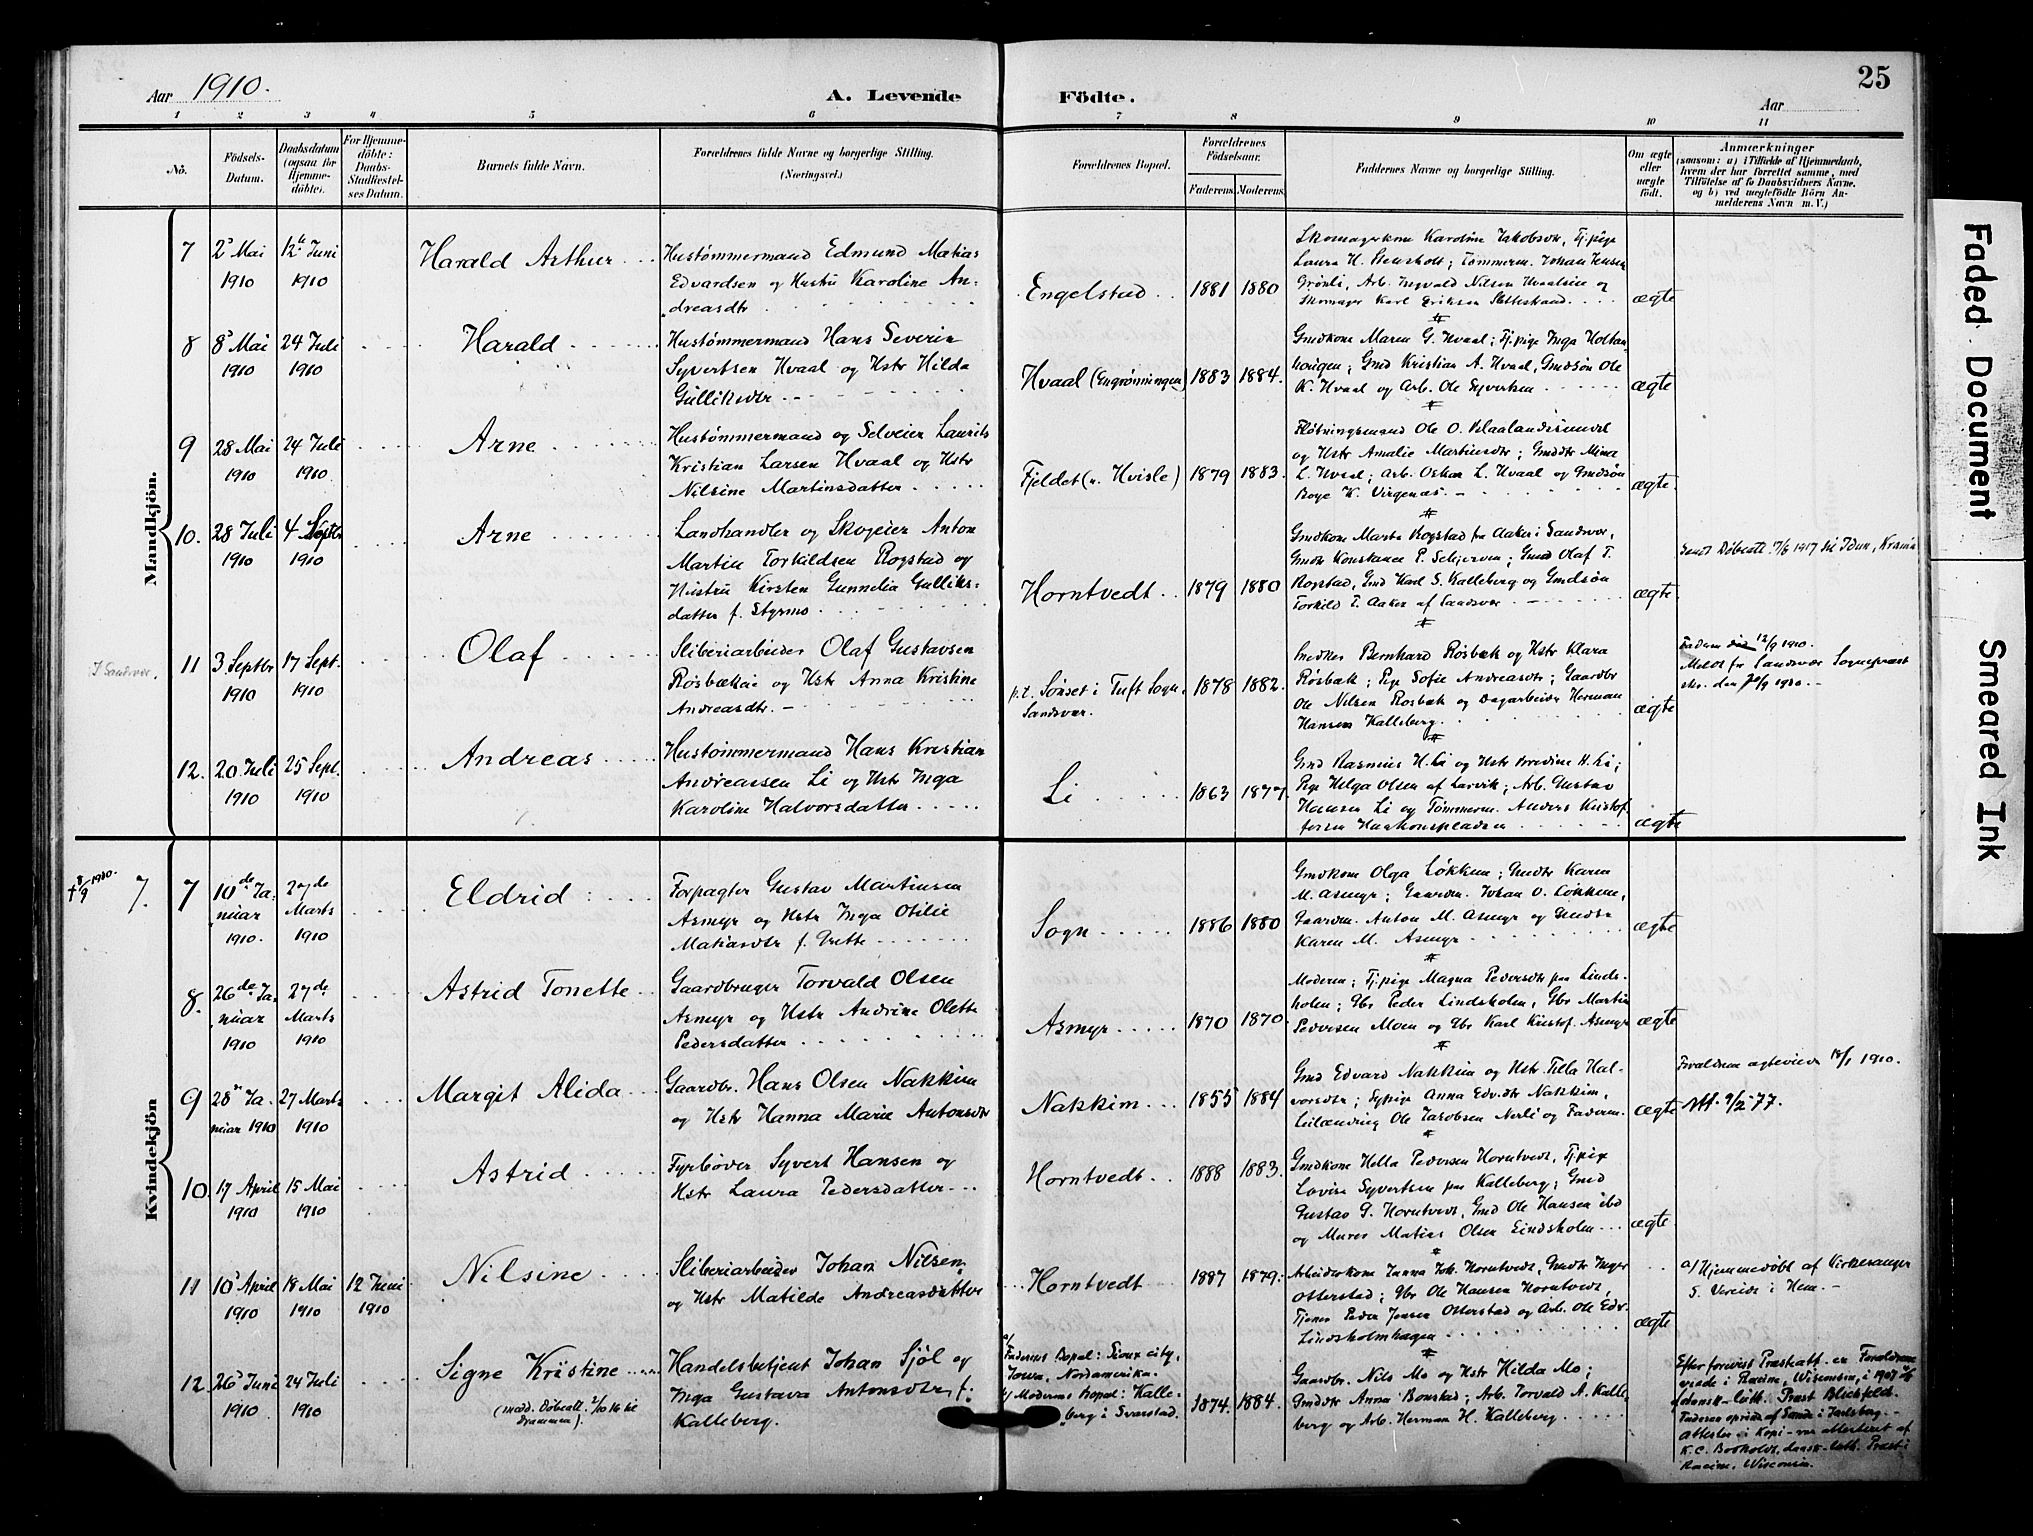 Aar 1910.
A. Levende
Födte.
25
Aar
1 2 3 4 5 6 7 8 9 10 11
No.
Födsels-
Datum.
Daabsdatum
(ogsaa for
Hjemme-
döbte).
For Hjemme-
döbte:
Daabs-
Stadfæstel-
ses Datum.
Barnets fulde Navn.
Forældrenes fulde Navne og borgerlige Stilling.
(Næringsvei.)
Forældrenes Bopæl.
Forældrenes
Födselsaar.
Faderens. Moderens.
Faddernes Navne og borgerlige Stilling.
Om ægte
eller
uægte
födt.
Anmærkninger
(saasom: a) i Tilfælde af Hjemmedaab,
hvem der har forrettet samme, med
Tilföielse af to Daabsvidners Navne,
og b) ved uægtefödte Börn An-
melderens Navn m. V.)
Mandkjön.
7
2 Mai
1910
12te Juni
1910
Harald Arthur
Hustømmermand Edmund Matias
Edvardsen og Hustru Karoline An-
dreasdtr
Engelstad
1881 1880
Skomagerkone Karoline Jakobsdtr, Tj.pige
Laura H. Stensholt; Tømmerm. Johan Jensen
Grønli, Arb. Ingvald Nilsen Hvaalseie og
Skomager Karl Eriksen Slettestrand
ægte
8
8 Mai
1910
24 Juli
1910
Harald
Hustømmermand Hans Severin
Syvertsen Hvaal og Hstr Hilda
Gulliksdtr
Hvaal (Engrønningen)
1883 1884.
Gmdkone Maren G. Hvaal; Tj.pige Inga Holtan-
haugen; Gmd Kristian A. Hvaal, Gmdsøn Ole
K. Hvaal og Arb. Ole Syvertsen
ægte
9
28 Mai
1910
24 Juli
1910
Arne
Hustømmermand og Selveier Laurits
Kristian Larsen Hvaal og Hstr
Nilsine Martinsdatter
Fjeldet (u. Hvisle)
1879 1883.
Fløtningsmand Ole O.
og Hstr Amalie Martinsdtr; Gmdtr Mina
L. Hvaal; Arb. Oskar L. Hvaal og Gmdsøn
Boye K. Virgenæs.
ægte
10.
28 Juli
1910
4 Septbr
1910
Arne
Landhandler og Skogeier Anton
Martin Torkildsen Rogstad og
Hustru Kirsten Gunnelia Gulliks-
datter f. Styrmo
Horntvedt
1879 1880
Gmdkone Marte Rogstad fra Aaker i Sandsvær,
Gmdtr Konstance P. Seljerven; Gmd Olaf T.
Rogstad, Gmd Karl S. Kalleberg og Gmdsøn
Torkild T. Aaker af Sandsvær
ægte
Sendt Døbeatt. 7/8 1917 til Idun, Krania
I Sandsvær.
11
3 Septbr
1910
17 Sept.
1910
Olaf
Sliberiarbeider Olaf Gustavsen
Røsbækeie og Hstr Anna Kristine
Andreasdtr.
p.t. Sønset i Tuft Sogn,
Sandsvær.
1878 1882.
Smedkes Bernhard Røsbæk og Hstr Klara
Røsbæk; Pige Sofie Andreasdtr; Gaardbr
Ole Nilsen Røsbæk og Dagarbeider Herman
Hansen Kalleberg.
ægte
Faderen død 12/9 1910.
Meldt fr Sandsvær Sogneprest
skr. den 20/9 1910.
12.
20 Juli
1910
25 Sept.
1910
Andreas
Hustømmermand Hans Kristian
Andreassen Li og Hstr Inga
Karoline Halvorsdatter
Li
1863 1877
Gmd Rasmus H. Li og Hstr Bredine H. Li;
Pige Helga Olsen af Larvik; Arb. Gustav
Hansen Li og Tømmerm. Anders Kristof-
fersen Haakonspladsen
ægte
Kvindekjön
† 8/9 1910.
7.
7
10de Ja-
nuar
1910.
27de
Marts
1910
Eldrid
Forpagter Gustav Martinsen
Asmyr og Hstr Inga Otilie
Matiasdtr f. Grette
Sogn
1886 1880
Gmdkone Olga Løkken; Gmdtr Karen
M. Asmyr; Gaardm. Johan O. Løkken,
Gaardm. Anton M. Asmyr og Gmdtr
Karen M. Asmyr
ægte
8.
26de Ja-
nuar
1910
27de
Marts
1910
Astrid Tonette
Gaardbruger Torvald Olsen
Asmyr og Hstr Andrine Olette
Pedersdatter
Asmyr
1870 1870
Moderen; Tj.pige Magna Pedersdtr paa Linds-
holm; Gbr Peder Lindsholm, Gbr Martin
Pedersen Moen og Gbr Karl Kristof. Asmyr
ægte
9
28 Ja-
nuar 1910
27 Marts
1910
Margit Alida
Gaardbr. Hans Olsen Nakkim
og Hstr Hanna Marie Antonsdtr
Nakkim
1855 1884
Gmd Edvard Nakkim og Hstr Tilla Hal-
vorsdtr; Sypige Anna Edv.dtr Nakkim,
Leilænding Ole Jakobsen Nerli og Faderen.
ægte
Forældrene ægteviede 18/1 1910.
Utf. 9/2-77.
10
17 April
1910
15 Mai
1910
Astrid
Fyrbøder Syvert Hansen og
Hstr Laura Pedersdatter
Horntvedt
1888 1883.
Gmdkone Hella Pedersen Horntvedt, Tj.pige
Lovise Syvertsen paa Kalleberg; Gmd
Gustav G. Horntvedt, Gmd Ole Hansen ibd
og Murer Matias Olsen Lindsholm
ægte
11
10 April
1910
18 Mai
1910
12 Juni
1910
Nilsine
Sliberiarbeider Johan Nilsen
og Hstr Matilde Andreasdatter
Horntvedt
1887 1879.
Arbeiderkone Janna Joh. Horntvedt, Gmdtr Inger
Otterstad; Gbr Ole Hansen Horntvedt,
Tjener Peder Jensen Otterstad og Arb. Ole Edv.
Lindsholmhagen
ægte
a/ Hjemmedøbt af Kirkesanger
S. Vereide i Hem.
12.
26 Juni
1910
24 Juli
1910
Signe Kristine
(medd. Døbeatt. 2/10 16 til
Drammen).
Handelsbetjent Johan Sjöl og
Inga Gustava Antonsdtr, f.
Kalleberg.
a/
Faderens Bopæl: Sioux city,
Iowa, Nordamerika.
b/ Moderens Bopæl: Kalle-
berg i Svarstad.
1874. 1884.
Gaardbr. Nils Mo og Hstr Hilda Mo;
Gmdtr Anna Bonstad; Arb. Torvald A. Kalle-
berg og Arb. Herman H. Kalleberg
Efter forevist Præsteatt. er Forældrene
viede i Racine, Wisconsin, i 1907 af
dansk-luth. Prest Blichfeld.
Faderen opvoxet af Sande i Jarlsberg.
Attester i Kopi var attesteret af
K. C. Bodholdt, dansk-luth. Præst i
Racine, Wisconsin.
Faded Document
Smeared Ink